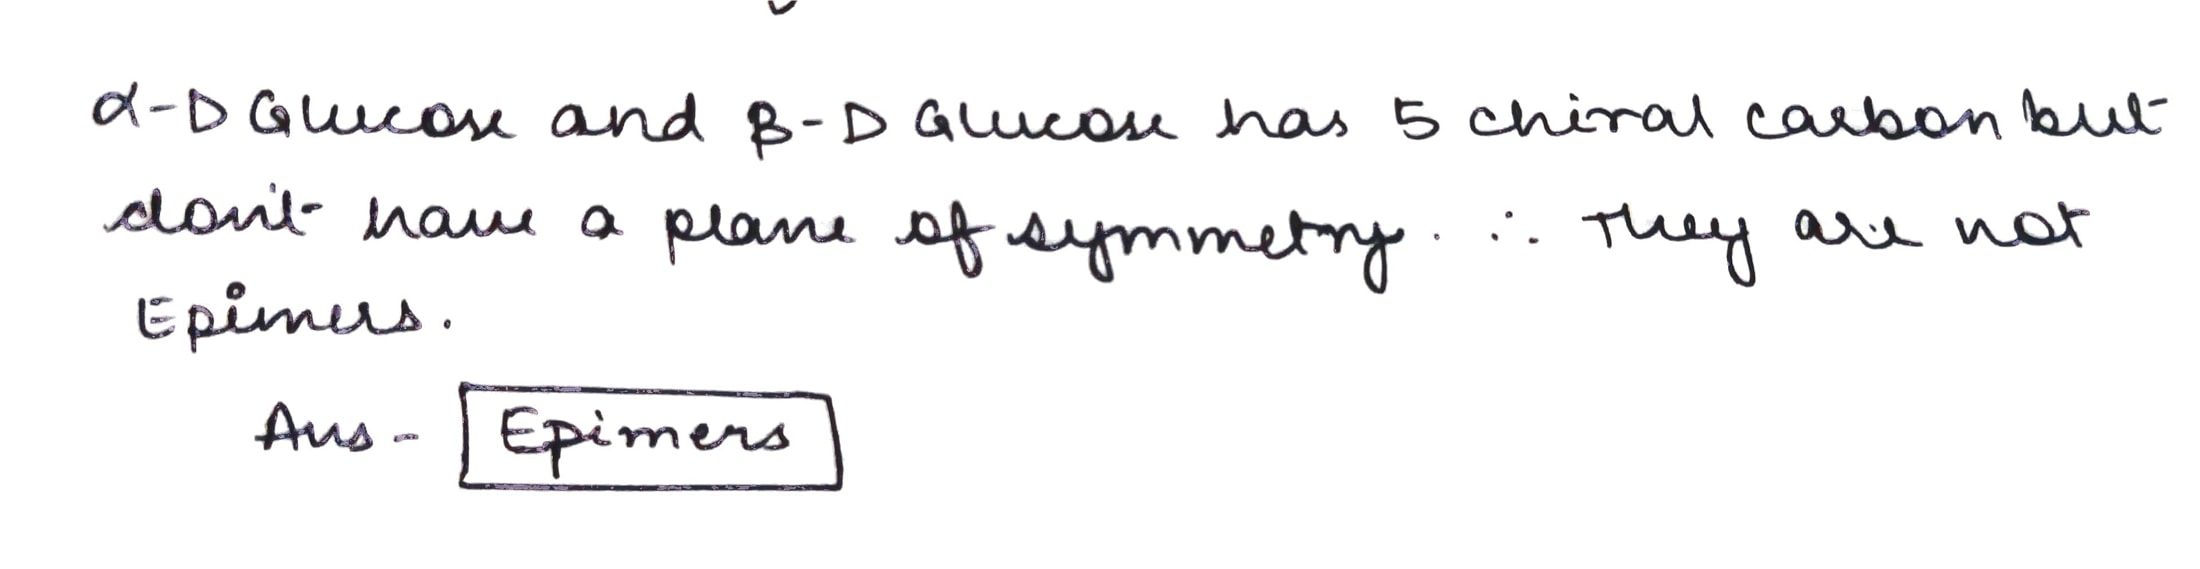 α-D Glucose and β-D Glucose has 5 chiral carbon but
don't have a plane of symmetry. ∴ They are not
Epimers.
Ans - Epimers